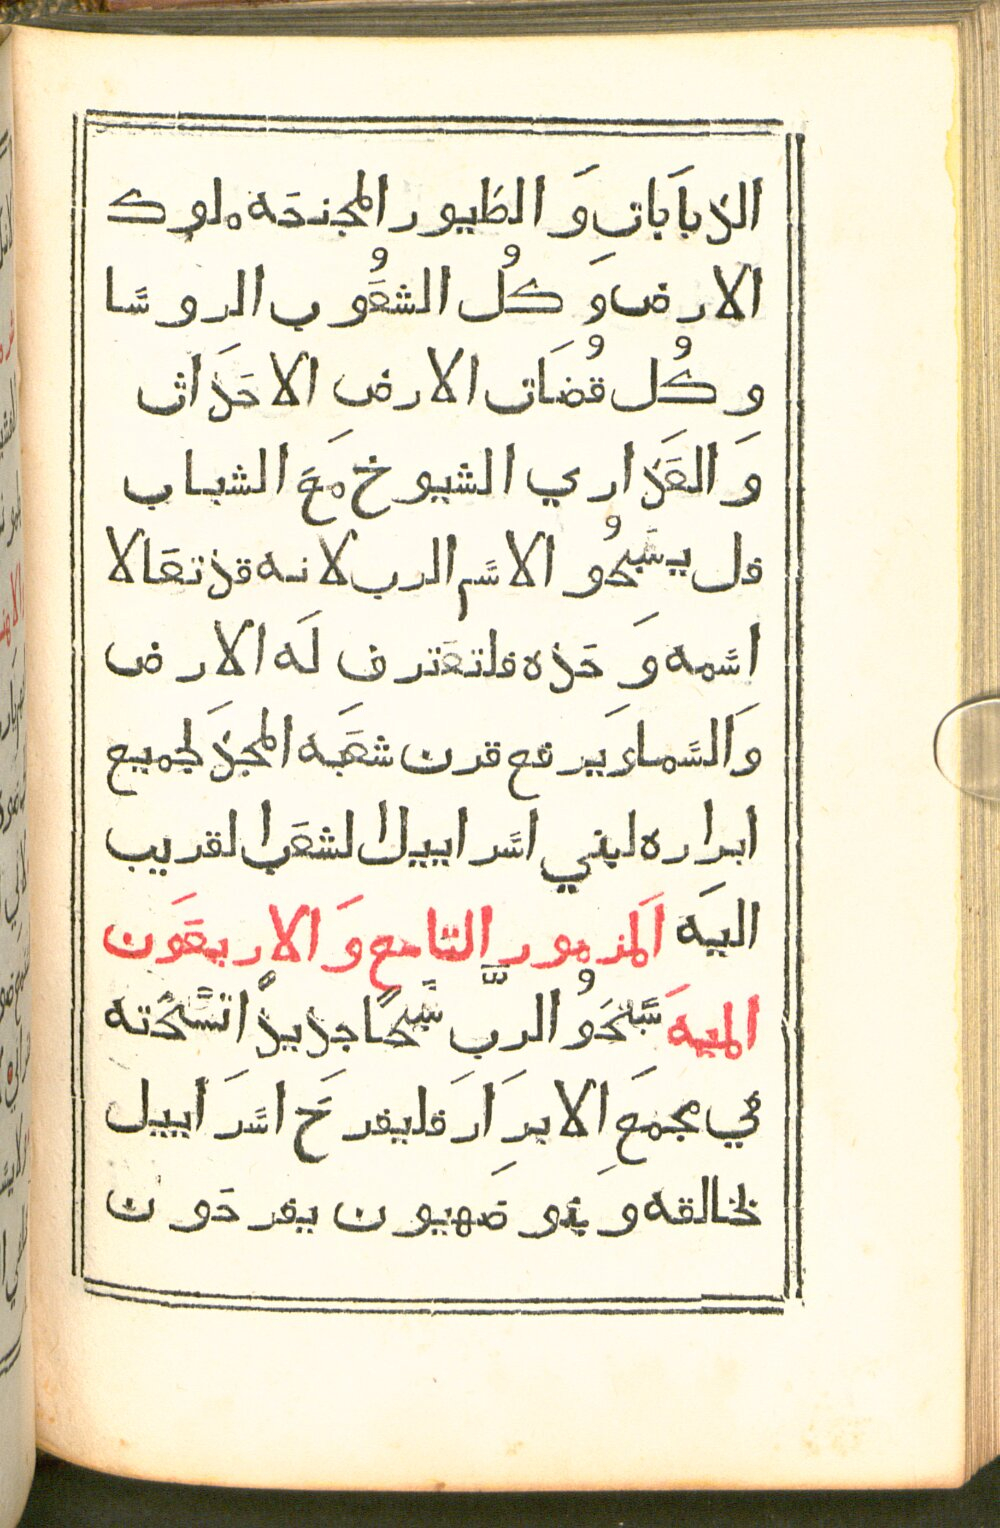 الدباباتِ وَ الطيور المجنحَه ملوك
الارض وَ كُل الشعُوب الروسَا
و كُل قُضَات الارض الاحَداث
وَ العَذاري الشيوخ مَعَ الشباب
فل يسَبحُو الاسَم الرب لانه قد تعَالا
اسَمه وَحَده فلتعَترف لَه الارض
وَالسَما ويَرفع قرن شعَبه المجَد لجميع
ابراره لبني اسَراييل الشعَب القريب
اليَه اَلمزمور التاسع وَ الاربعَون
الميهَ سَبّحَوُ الربّ سَبحًا جديدً اتسَبحَته
في مجمعَِ الابرَِارَ فليفرَحَ اسَرَاييل
لخالقه و بنو صَهيون يفرحَون